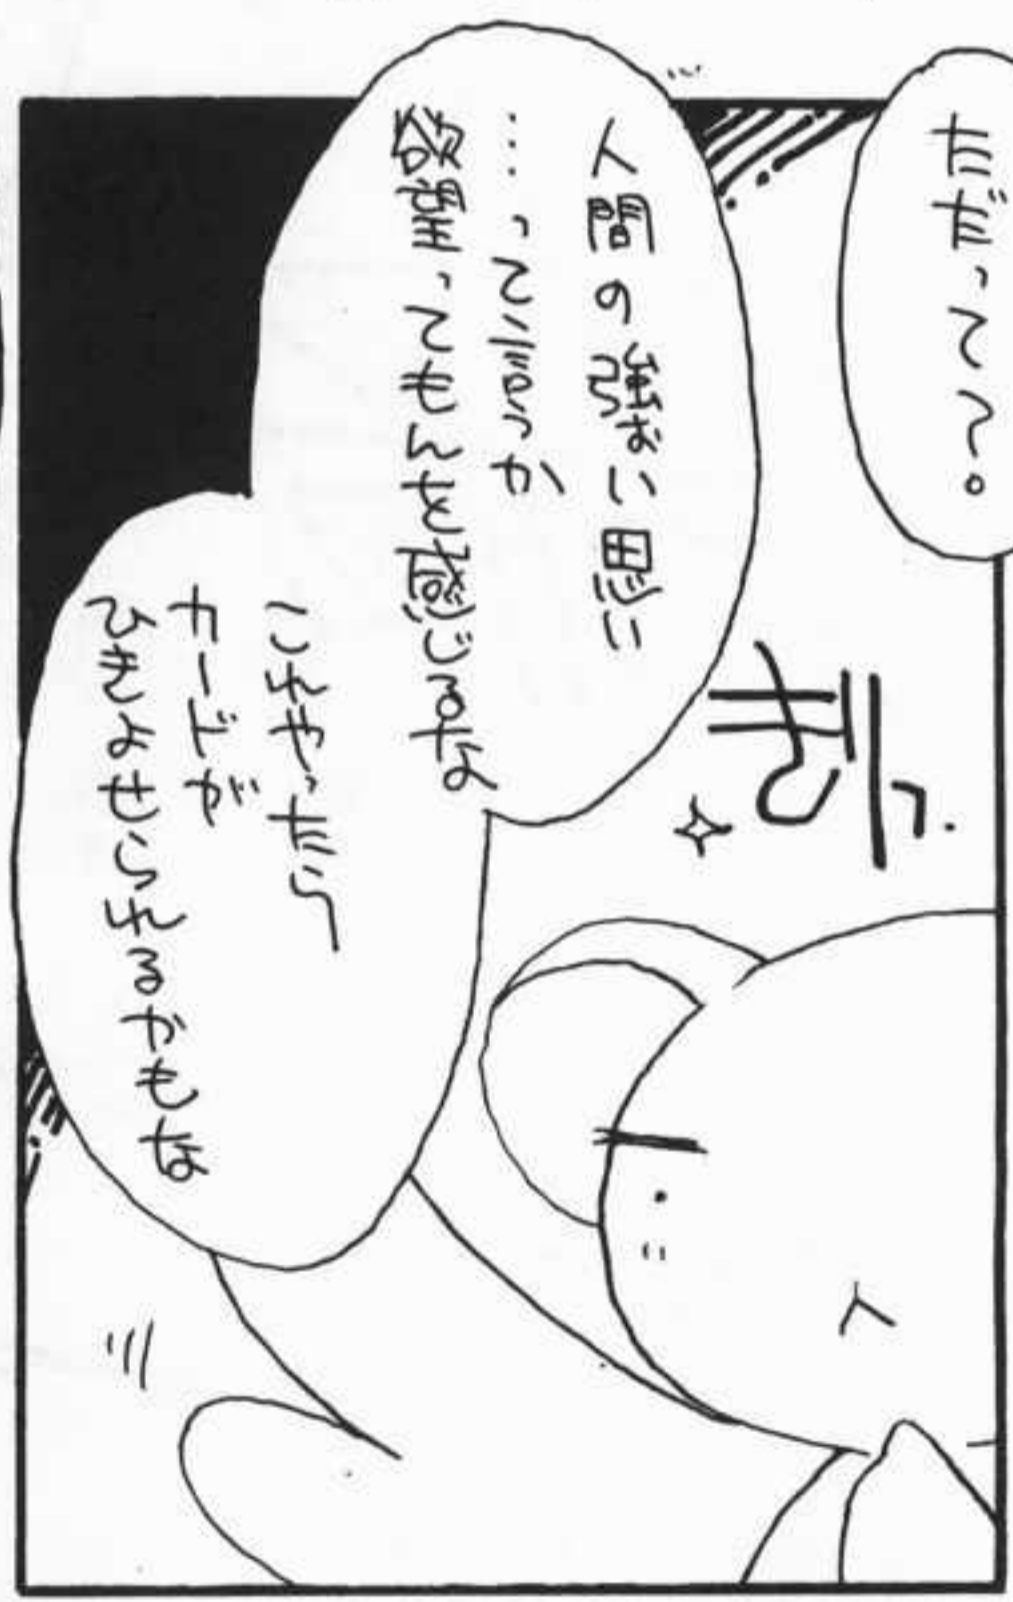 ただって〜。
人間の強ぉい思い
…って言うか
欲望ってもんを感じるな
これやったら
カードが
ひきよせられるやもな